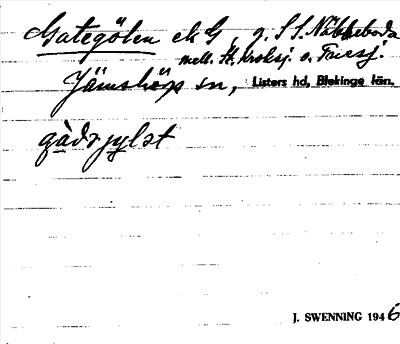 Gategölen ek G, g. S S. Näbbeboda
mell. St. Kroksj. o. Triesj.
Jämshögs sn, Listers hd, Blekinge län.
J. SWENNING 1946